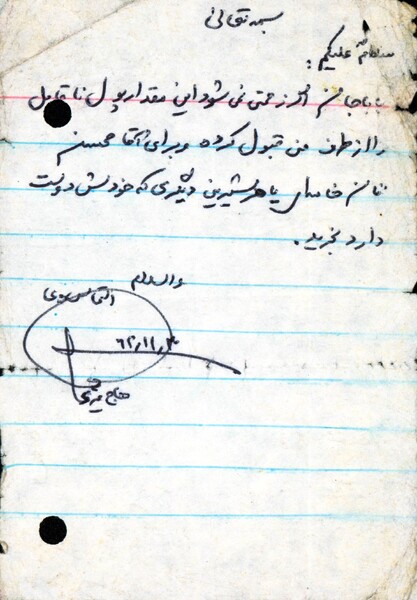 بسمه تعالی
سلام علیکم:
باباجانم اگر زحمتی نمی شود این مقدار پول ناقابل
را از طرف من قبول کرده و برای آقا محسن
نان خامه‌ای یا هر شیرینی دیگری که خودش دوست
دارد بخرید.
والسلام
التماس دعا
۶۲٫۱۱٫۳
حاج